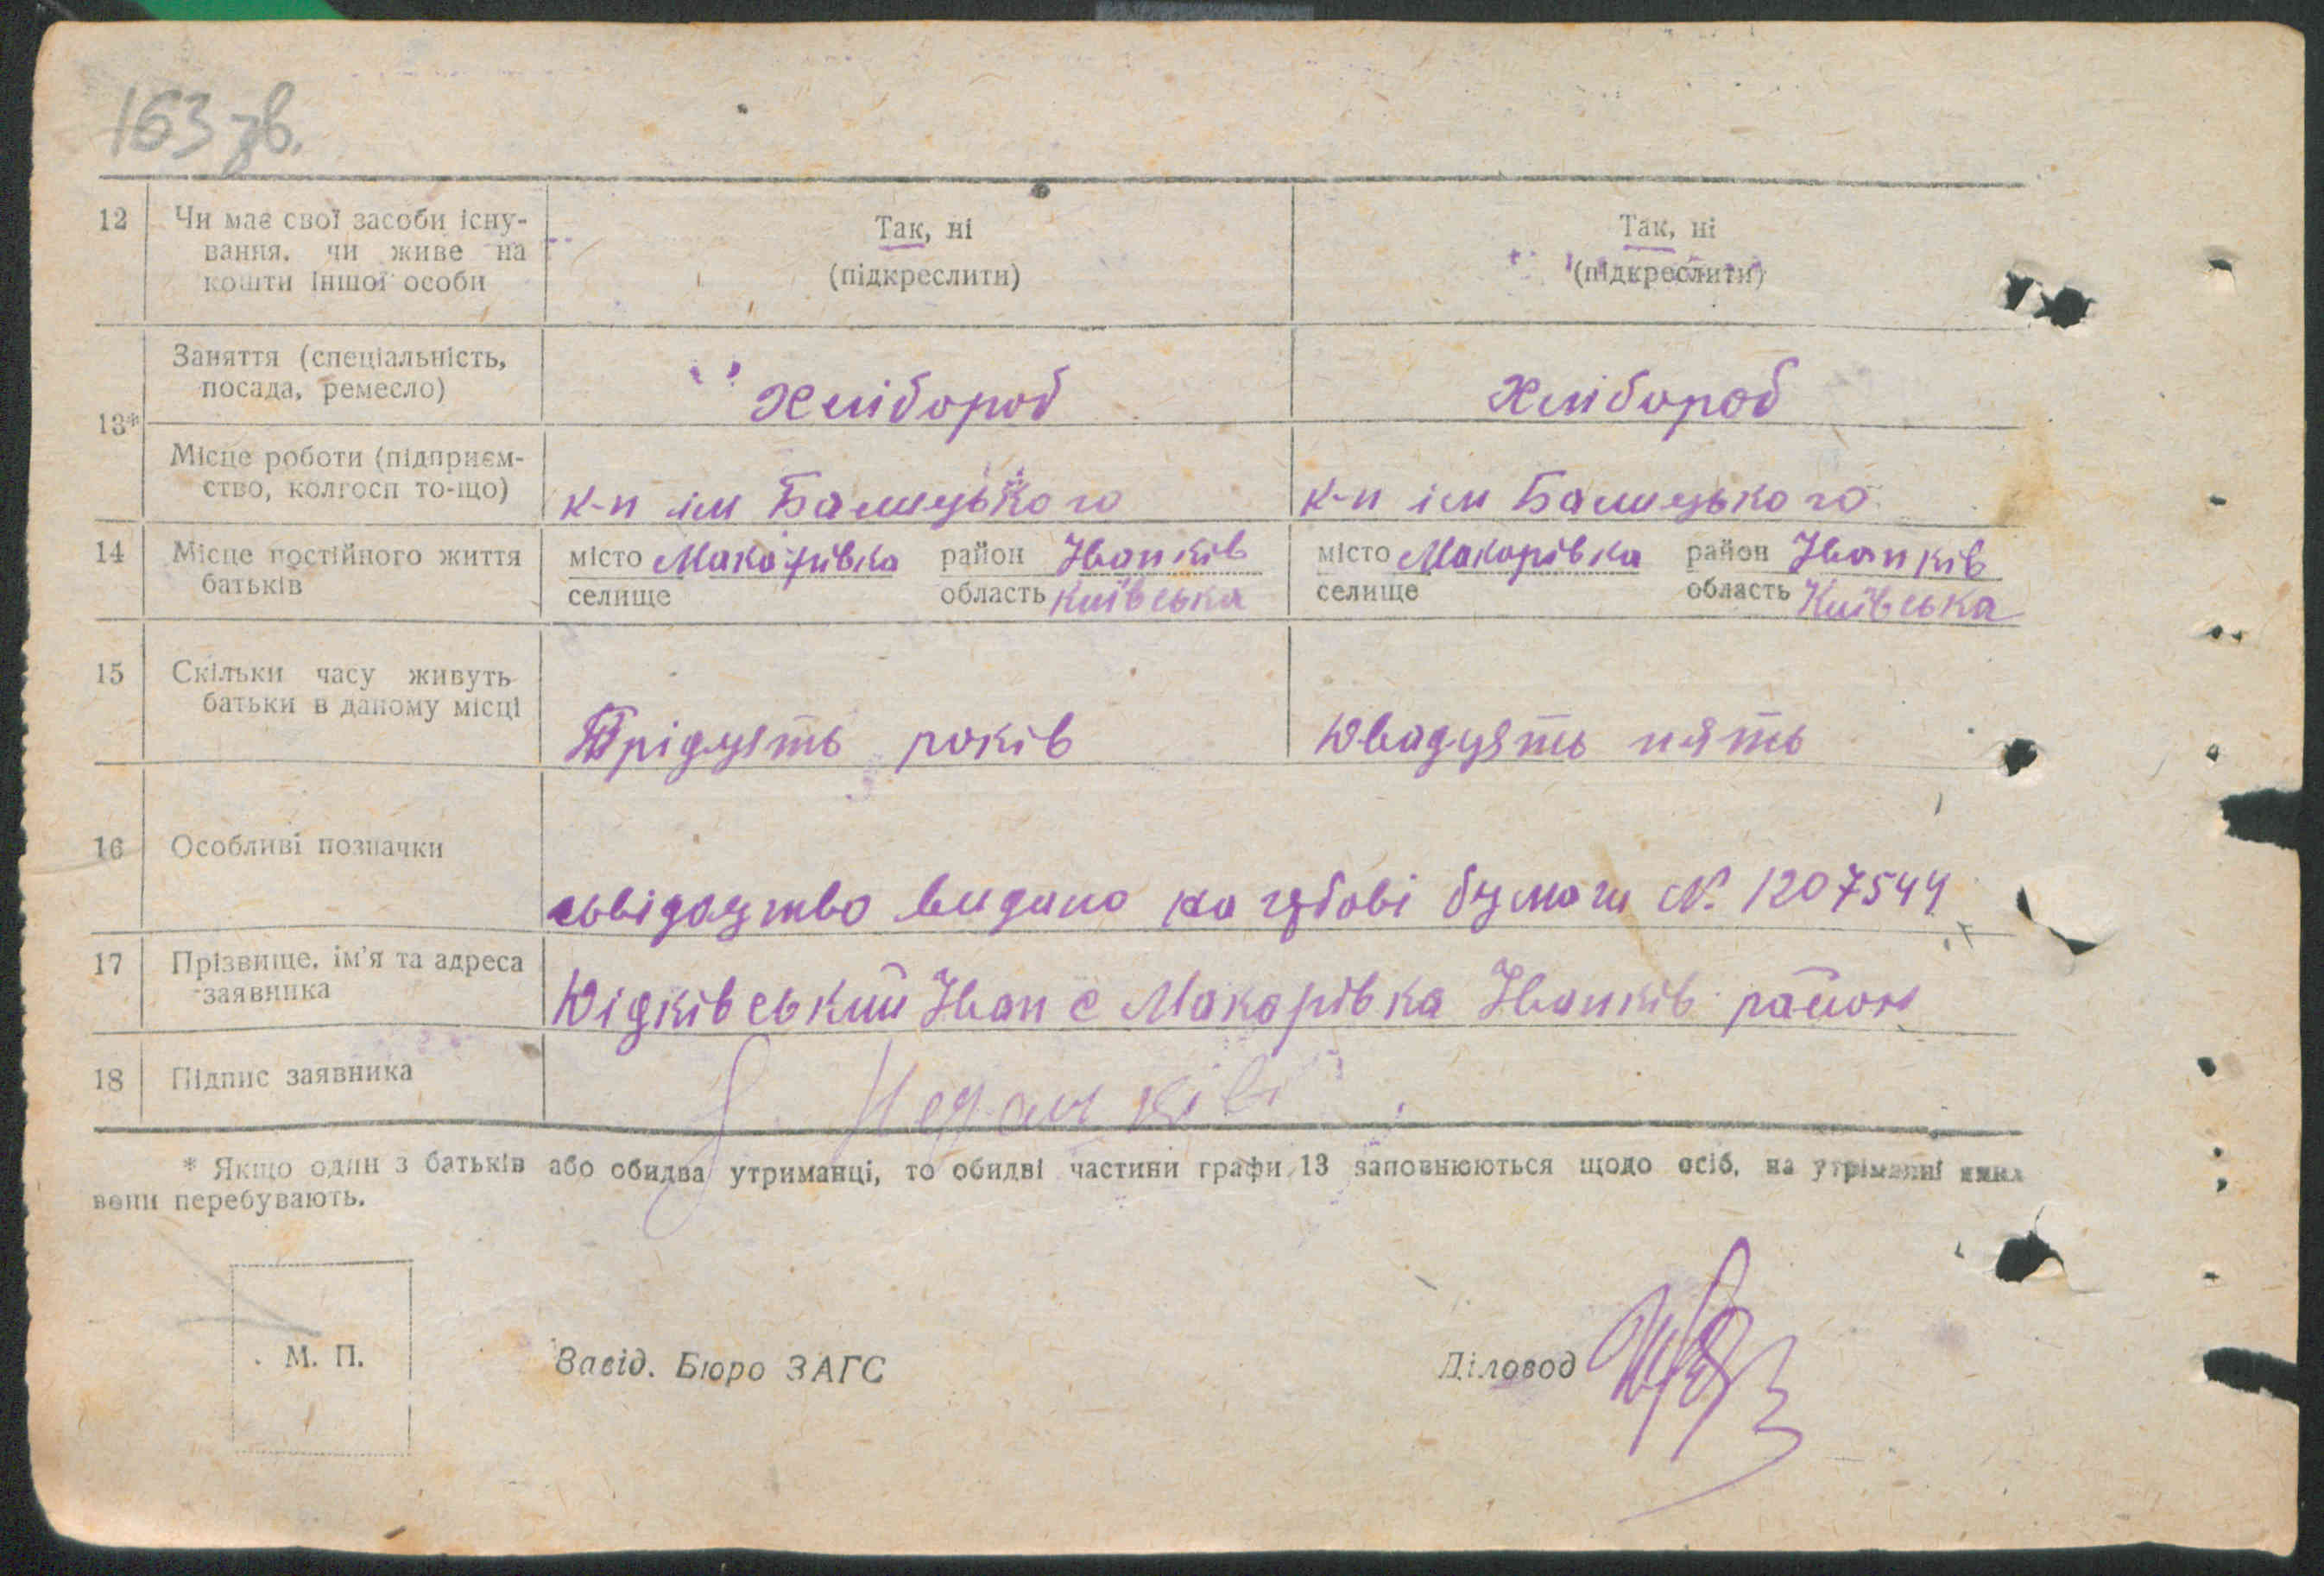 163 зв.
12 Чи має свої засоби існу- Так, ні Так, ні
вання, чи живе на (підкреслити) (підкреслити)
кошти іншої особи
Заняття (спеціальність,
посада, ремесло) Хлібороб Хлібороб
13*
Місце роботи (підприєм-
ство, колгосп то-що) к-п ім Балицького к-п ім Балицького
14 Місце постійного життя місто Макарівка район Іванків місто Макарівка район Іванків
батьків селище область Київська селище область Київська
15 Скільки часу живуть
батьки в даному місці Трідцять років Двадцять пять
16 Особливі позначки
свідоцтво видано на бумаги №. 1207544
17 Прізвище, ім'я та адреса
заявника Дідківський Іван с Макарівка Іванків район
18 Підпис заявника
* Якщо один з батьків або обидва утриманці, то обидві частини графи 13 заповнюються щодо осіб, на утріманні яких
вони перебувають.
М. П. Завід. Бюро ЗАГС Діловод